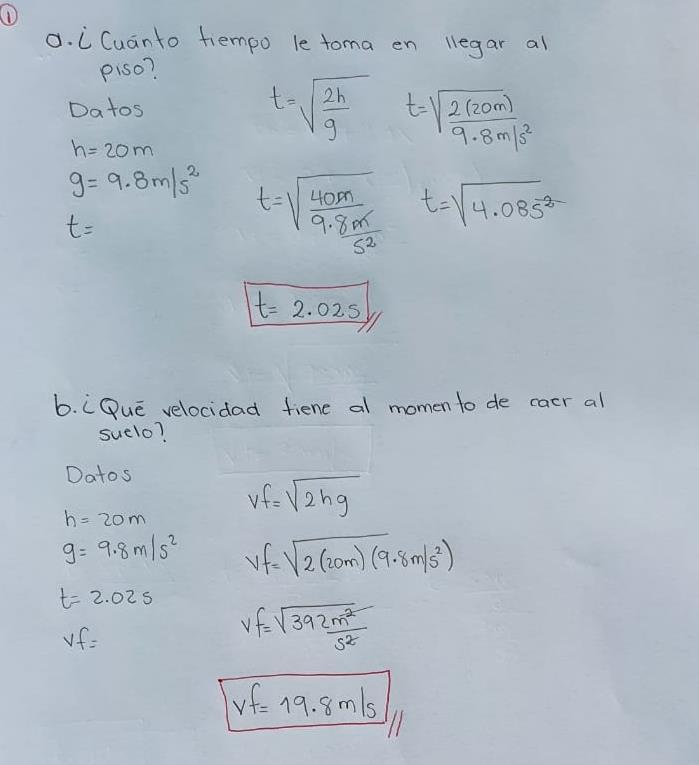 ①
a. ¿Cuánto tiempo le toma en llegar al
piso?
Datos
h= 20m
g= 9.8m/s²
t=
t=√(2h/g) t=√(2(20m)/9.8m/s²)
t=√(40m/9.8m/s²) t=√4.08s²
t= 2.02s
b. ¿Qué velocidad tiene al momento de caer al
suelo?
Datos
h= 20m
g= 9.8m/s²
t= 2.02s
vf=
vf=√2hg
vf=√2(20m)(9.8m/s²)
vf=√392m²/s²
vf= 19.8m/s